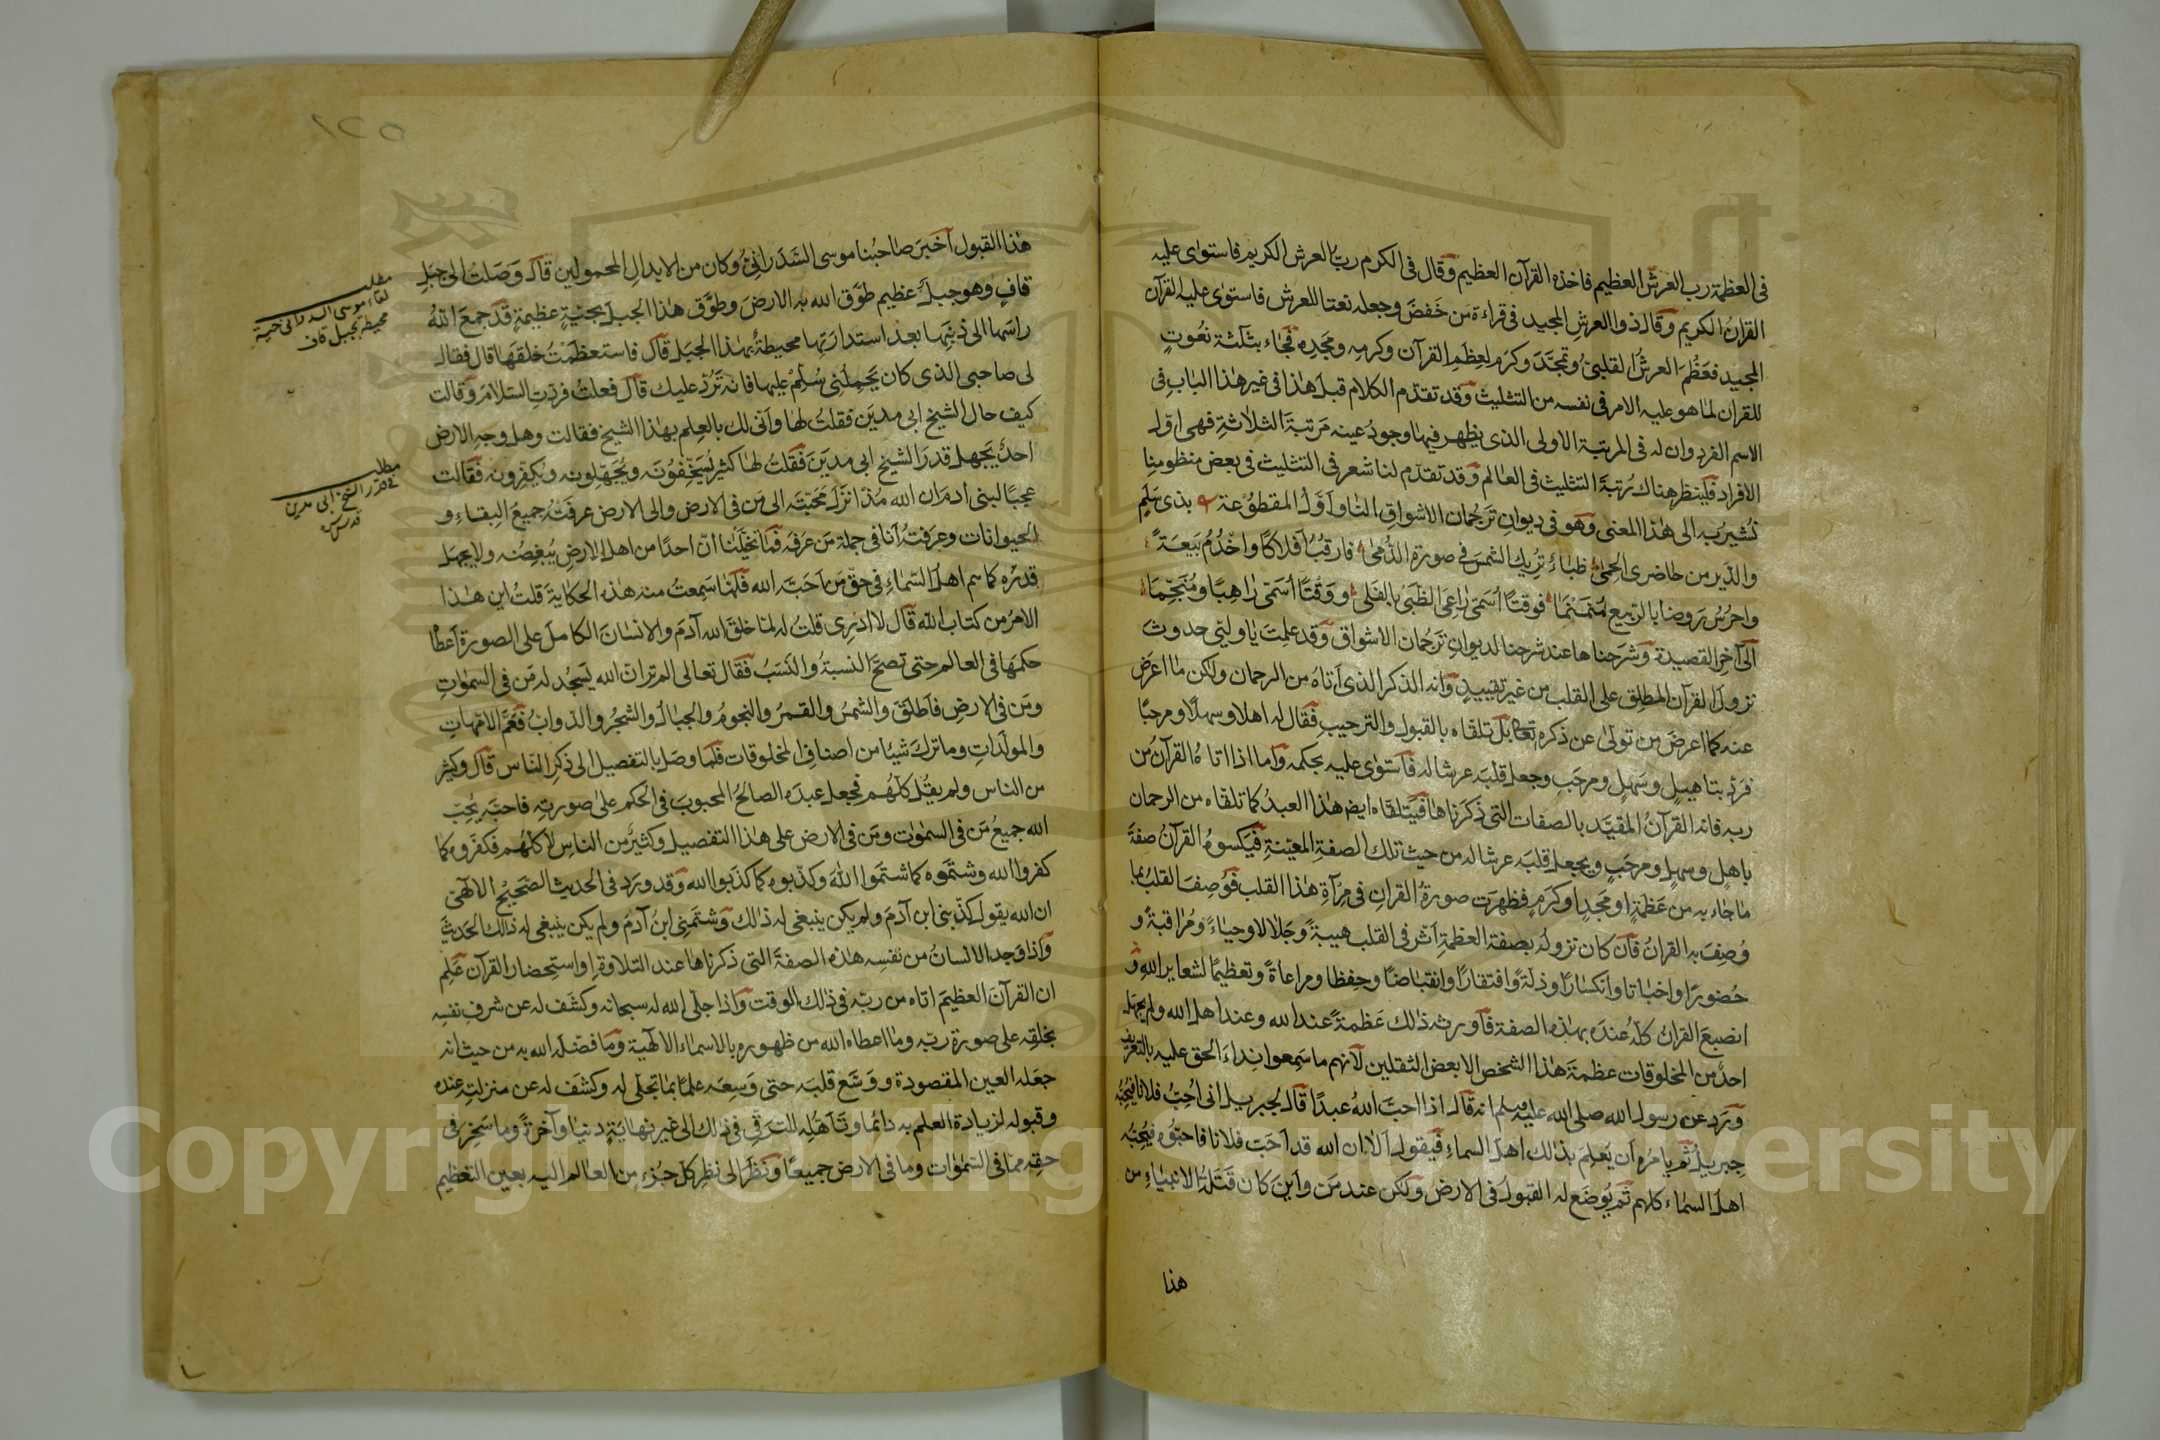 فى العظمة رب العرش العظيم فاخذه القرآن العظيم وقال فى الكرم رب العرش الكريم فاستوى عليه
القران الكريم وقال ذو العرش المجيد فى قراءة من خفض وجعله نعتا للعرش فاستوى عليه القرآن
المجيد فعظم العرش القلبى وتمجد وكرم لعظم القرآن وكرمه ومجده فجاء بثلثة نعوت
للقران لما هو عليه الامر فى نفسه من التثليث وقد تقدم الكلام قبل هذا فى غير هذا الباب فى
الاسم الفرد وان له فى المرتبة الاولى الذى يظهر فيها وجود عينه مرتبة الثلاثة فهى اول
الافراد فلينظر هناك رتبة التثليث فى العالم وقد تقدم لنا شعر فى التثليث فى بعض منظومنا
نشير به الى هذا المعنى وهو فى ديوان ترجمان الاشواق لنا واول المقطوعة بذى سلم
والدير من حاضرى الحمى ظباء تريك الشمس فى صورة الدمى فارقب افلاكا واخدم بيعة
واحرس روضا بالربيع منمنما فوقتا اسمى راعى الظبى بالفلى ووقتا اسمى راهبا ومنجما
الى آخر القصيدة وشرحناها عند شرحنا لديوان ترجمان الاشواق وقد علمت يا وليى حدوث
نزول القرآن المطلق على القلب من غير تقييد وانه الذكر الذى اتاه من الرحمان ولكن ما اعرض
عنه كما اعرض من تولى عن ذكره تعا بل تلقاه بالقبول والترحيب فقال له اهلا وسهلا ومرحبا
فرد بتاهيل وسهل ومرحب وجعل قلبه عرشا له فاستوى عليه بحكمه واما اذا اتاه القرآن من
ربه فانه القرآن المقيد بالصفات التى ذكرناها فيتلقاه ايض هذا العبد كما تلقاه من الرحمان
باهل وسهل ومرحب ويجعل قلبه عرشا له من حيث تلك الصفة المعينة فيكسوه القرآن صفة
ما جاء به من عظمة او مجد او كرم فظهرت صورة القران فى مرآة هذا القلب فوصف القلب بما
وصف به القران فان كان نزوله بصفة العظمة اثر فى القلب هيبة وجلالا وحياء ومراقبة و
حضورا واخباتا وانكسارا وذلة وافتقارا وانقباضا وحفظا ومراعاة وتعظيما لشعاير الله و
انصبغ القران كله عنده بهذه الصفة فاورثه ذلك عظمة عند الله وعند اهل الله ولم يجهل
احد من المخلوقات عظمة هذا الشخص الا بعض الثقلين لانهم ما سمعوا نداء الحق عليه بالتعريف
وورد عن رسول الله صلى الله عليه وسلم انه قال اذا احب الله عبدا قال لجبريل انى احب فلانا فيحبه
جبريل ثم يامره ان يعلم بذلك اهل السماء فيقول الا ان الله قد احب فلانا فاحبوه فيحبه
اهل السماء كلهم ثم يوضع له القبول فى الارض ولكن عند من واين كان قتله الانبياء من
هذا
١٢٥
هذا القبول اخبر صاحبنا موسى السدرانى وكان من الابدال المحمولين قال وصلت الى جبل
قاف وهو جبل عظيم طوق الله به الارض وطوق هذا الجبل بحية عظيمة قد جمع الله
راسها الى ذنبها بعد استدارتها محيطة بهذا الجبل قال فاستعظمت خلقها قال فقال
لى صاحبى الذى كان يحملنى سلم عليها فانه ترد عليك قال فعلت فردت السلام وقالت
كيف حال الشيخ ابى مدين فقلت لها وانى لك بالعلم بهذا الشيخ فقالت وهل وجه الارض
احد يجهل قدر الشيخ ابى مدين فقلت لها كثير يستخفونه ويجهلونه ويكفرونه فقالت
عجبا لبنى ادم ان الله مذ انزل محبته الى من فى الارض والى الارض عرفته جميع البقاع و
الحيوانات وعرفته انا فى جملة من عرفه فما تخيلنا ان احدا من اهل الارض يبغضه ولا يجهل
قدره كما سم اهل السماء فى حق من احبه الله فلما سمعت منه هذه الحكاية قلت اين هذا
الامر من كتاب الله قال لا ادرى قلت له لما خلق الله آدم والانسان الكامل على الصورة اعطا
حكمها فى العالم حتى تصح النسبة والنسب فقال تعالى الم تر ان الله يسجد له من فى السموات
ومن فى الارض فاطلق والشمس والقمر والنجوم والجبال والشجر والدواب فعم الامهات
والمولدات وما ترك شيئا من اصناف المخلوقات فلما وصل بالتفصيل الى ذكر الناس قال وكثير
من الناس ولم يقل كلهم فجعل عبده الصالح المحبوب فى الحكم على صورته فاحبه بحب
الله جميع من فى السموات ومن فى الارض على هذا التفصيل وكثير من الناس لا كلهم فكفروه كما
كفروا الله وشتموه كما شتموا الله وكذبوه كما كذبوا الله وقد ورد فى الحديث الصحيح الالهى
ان الله يقول كذبنى ابن آدم ولم يكن ينبغى له ذلك وشتمنى ابن آدم ولم يكن ينبغى له ذلك الحديث
واذا وجد الانسان من نفسه هذه الصفة التى ذكرناها عند التلاوة او استحضار القرآن علم
ان القرآن العظيم اتاه من ربه فى ذلك الوقت واذا جلى الله له سبحانه وكشف له عن شرف نفسه
بخلقه على صورة ربه وما اعطاه الله من ظهوره بالاسماء الالهية وما فضله الله به من حيث انه
جعله العين المقصودة ووسع قلبه حتى وسعه علما بما تجلى له وكشف له عن منزلته عنده
وقبوله لزيادة العلم به دائما وتاهله للترقى فى ذلك الى غير نهاية دنيا وآخرة وما سخر فى
حقه مما فى السموات وما فى الارض جميعا ونظر الى نظر كل جزء من العالم اليه بعين التعظيم
مطلب
لقاء موسى السدرانى حية
محيطة بجبل قاف
مطلب
فى قدر الشيخ ابى مدين
قدس سره
Copyright © King Saud University